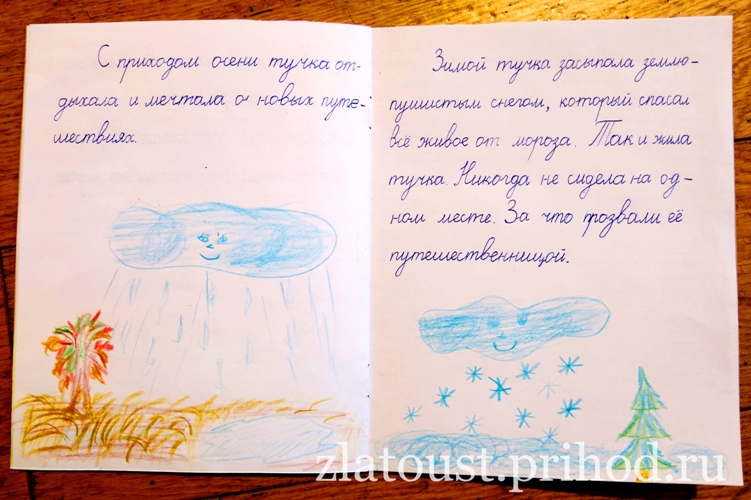 С приходом осени тучка от-
дыхала и мечтала о новых путе-
шествиях.
Зимой тучка засыпала землю
пушистым снегом, который спасал
всё живое от мороза. Так и жила
тучка. Никогда не сидела на од-
ном месте. За что прозвали её
путешественницой.
zlatoust.prihod.ru